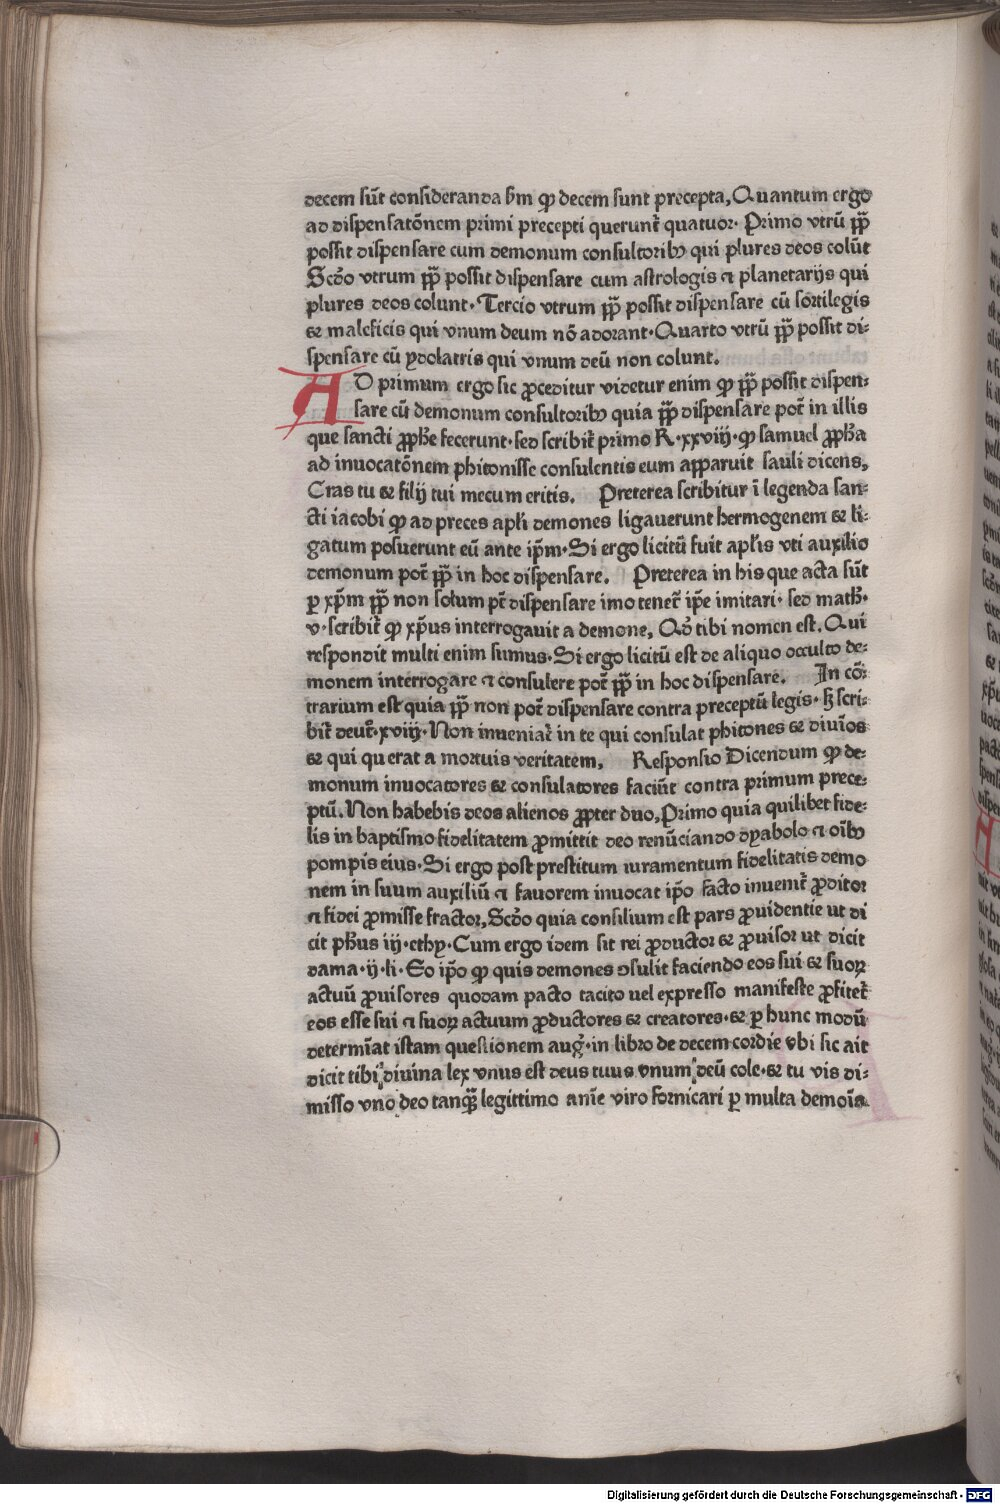 decem sūt consideranda ẜm ꝙ decem sunt precepta, Quantum ergo
ad dispensatōnem primi precepti querunt̄ quatuor· Primo vtrū ꝑꝑ̄
possit dispensare cum demonum consultoribꝫ qui plures deos colūt
Scd̄o vtrum ꝑꝑ̄ possit dispensare cum astrologis ⁊ planetarijs qui
plures deos colunt· Tercio vtrum ꝑꝑ̄ possit dispensare cū sortilegis
⁊ maleficis qui vnum deum nō adorant· Quarto vtrū ꝑꝑ̄ possit di⸗
spensare cū ydolatris qui vnum deū non colunt.
AD primum ergo sic ꝓceditur videtur enim ꝙ ꝑꝑ̄ possit dispen⸗
sare cū demonum consultoribꝫ quia ꝑꝑ̄ dispensare pot̄ in illis
que sancti ꝓph̄e fecerunt· sed scribit̄ primo R·xxviij· ꝙ samuel ꝓph̄a
ad inuocatōnem phitonisse consulentis eum apparuit sauli dicens,
Cras tu ⁊ filij tui mecum eritis. Preterea scribitur ī legenda san⸗
cti iacobi ꝙ ad preces apl̄i demones ligauerunt hermogenem ⁊ li⸗
gatum posuerunt eū ante ip̄m· Si ergo licitū fuit apl̄is vti auxilio
demonum pot̄ ꝑꝑ̄ in hoc dispensare. Preterea in his que acta sūt
ꝑ xp̄m ꝑꝑ̄ non solum pt̄ dispensare imo tenet̄ ip̄e imitari· sed math̄·
v· scribit̄ ꝙ xp̄us interrogauit a demone, Qd̄ tibi nomen est. Qui
respondit multi enim sumus· Si ergo licitū est de aliquo occulto de⸗
monem interrogare ⁊ consulere pot̄ ꝑꝑ̄ in hoc dispensare. In cō⸗
trarium est quia ꝑꝑ̄ non pot̄ dispensare contra preceptū legis· ẜꝫ scri⸗
bit̄ deut̄·xviij· Non inueniat̄ in te qui consulat phitones ⁊ diuīos
⁊ qui querat a mortuis veritatem, Responsio Dicendum ꝙ de⸗
monum inuocatores ⁊ consulatores faciūt contra primum prece⸗
ptū. Non habebis deos alienos ꝓpter duo, Primo quia quilibet fide⸗
lis in baptismo fidelitatem ꝓmittit deo renūciando dyabolo ⁊ oībꝫ
pompis eius· Si ergo post prestitum iuramentum fidelitatis demo
nem in suum auxiliū ⁊ fauorem inuocat ip̄o facto inuenit̄ ꝓditor
⁊ fidei ꝓmisse fractor, Scd̄o quia consilium est pars ꝓuidentie ut di
cit ph̄us iij· ethy· Cum ergo idem sit rei ꝓductor ⁊ ꝓuisor ut dicit
dama·ij·li· Eo ip̄o ꝙ quis demones ꝯsulit faciendo eos sui ⁊ suoꝝ
actuū ꝓuisores quodam pacto tacito uel expresso manifeste ꝓfitet̄
eos esse sui ⁊ suoꝝ actuum ꝓductores ⁊ creatores· ⁊ ꝑ hunc modū
determīat istam questionem auḡ· in libro de decem cordie vbi sic ait
dicit tibi diuina lex vnus est deus tuus vnum deū cole· ⁊ tu vis di⸗
misso vno deo tanqꝫ̄ legittimo anīe viro fornicari ꝑ multa demoīa
Digitalisierung gefördert durch die Deutsche Forschungsgemeinschaft - DFG